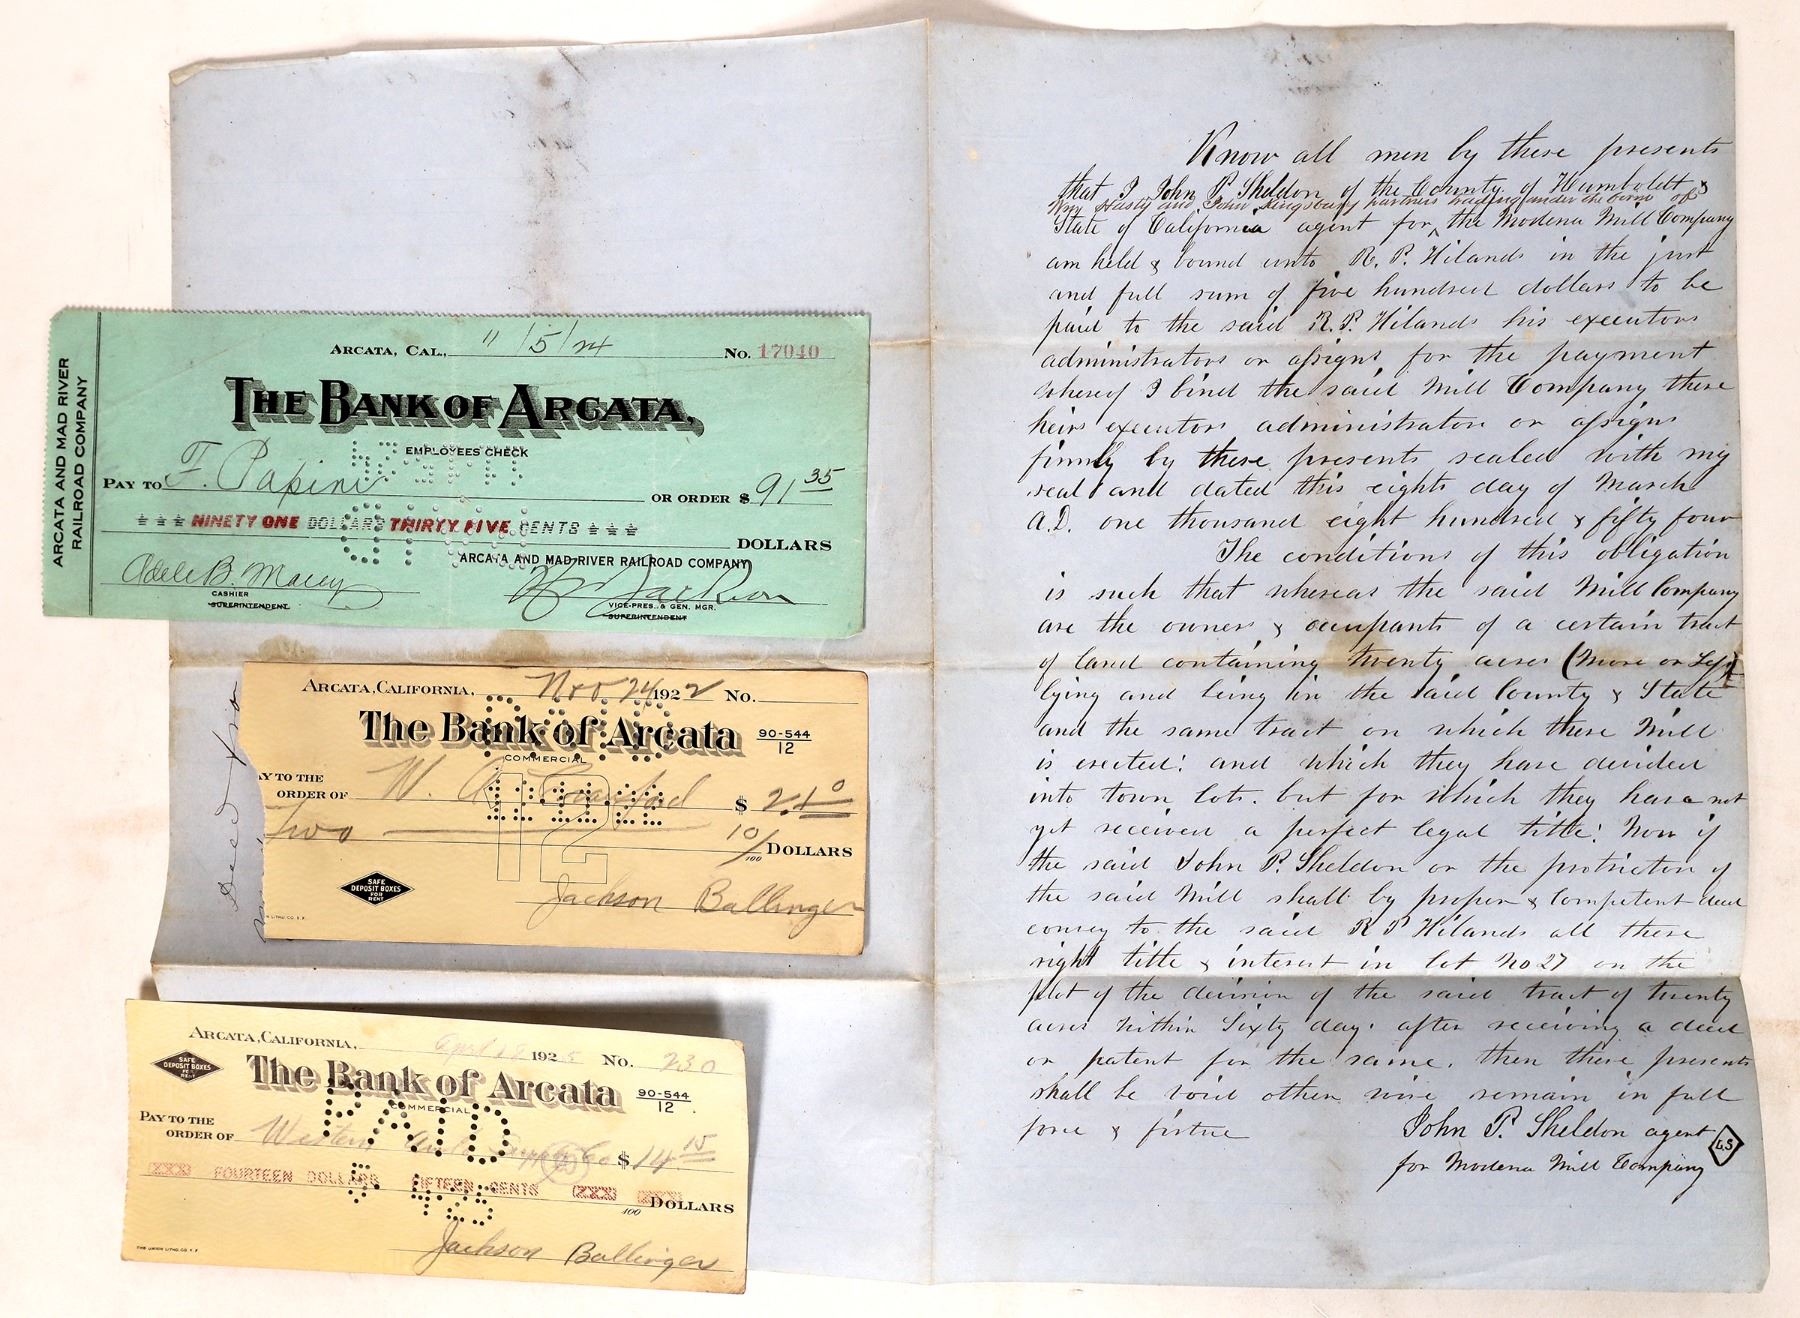 ARCATA AND MAD RIVER
RAILROAD COMPANY
ARCATA, CAL., 11/5/24 No. 17040
THE BANK OF ARCATA,
EMPLOYEES CHECK
PAY TO F. Papini OR ORDER $ 91 35
NINETY ONE DOLLARS THIRTY FIVE CENTS
DOLLARS
ARCATA AND MAD RIVER RAILROAD COMPANY
Adele B. Macey
CASHIER
SUPERINTENDENT
Jackson
VICE-PRES. & GEN. MGR.
SUPERINTENDENT
ARCATA, CALIFORNIA, Nov. 24 1922 No.
The Bank of Arcata 90-544
12
COMMERCIAL
AY TO THE
ORDER OF W. A. Crawford $ 2.10
Two 10/100 DOLLARS
12
SAFE
DEPOSIT BOXES
FOR
RENT
Jackson Ballinger
Deed
ARCATA, CALIFORNIA, April 1925 No. 230
SAFE
DEPOSIT BOXES
FOR
RENT
The Bank of Arcata 90-544
12
COMMERCIAL
PAID
PAY TO THE
ORDER OF Western Supply Co $ 14 15
FOURTEEN DOLLARS FIFTEEN CENTS
100 DOLLARS
THE UNION LITHO. CO. S. F.
Jackson Ballinger
Know all men by these presents
that I John P. Sheldon of the County of Humboldt &
Wm Hasty and John Kingsbury partners trading under the firm of
State of California agent for ^ the Modena Mill Company
am held & bound unto R. P. Hilands in the just
and full sum of five hundred dollars to be
paid to the said R. P. Hilands his executors
administrators or assigns for the payment
whereof I bind the said Mill Company there
heirs executors administrators or assigns
firmly by these presents sealed with my
seal and dated this eighth day of March
A.D. one thousand eight hundred & fifty four
The conditions of this obligation
is such that whereas the said Mill Company
are the owners & occupants of a certain tract
of land containing twenty acres (more or less)
lying and being in the said County & State
and the same tract on which there Mill
is erected: and which they have devided
into town lots. but for which they have not
yet received a perfect legal title: Now if
the said John P. Sheldon or the proprietors of
the said Mill shall by proper & competent deed
convey to the said R P Hilands all there
right title & interest in lot No 27 on the
plot of the devision of the said tract of twenty
acres within Sixty days after receiving a deed
or patent for the same. then these presents
shall be void other wise remain in full
force & virtue
John P. Sheldon agent
for Modena Mill Company
LS